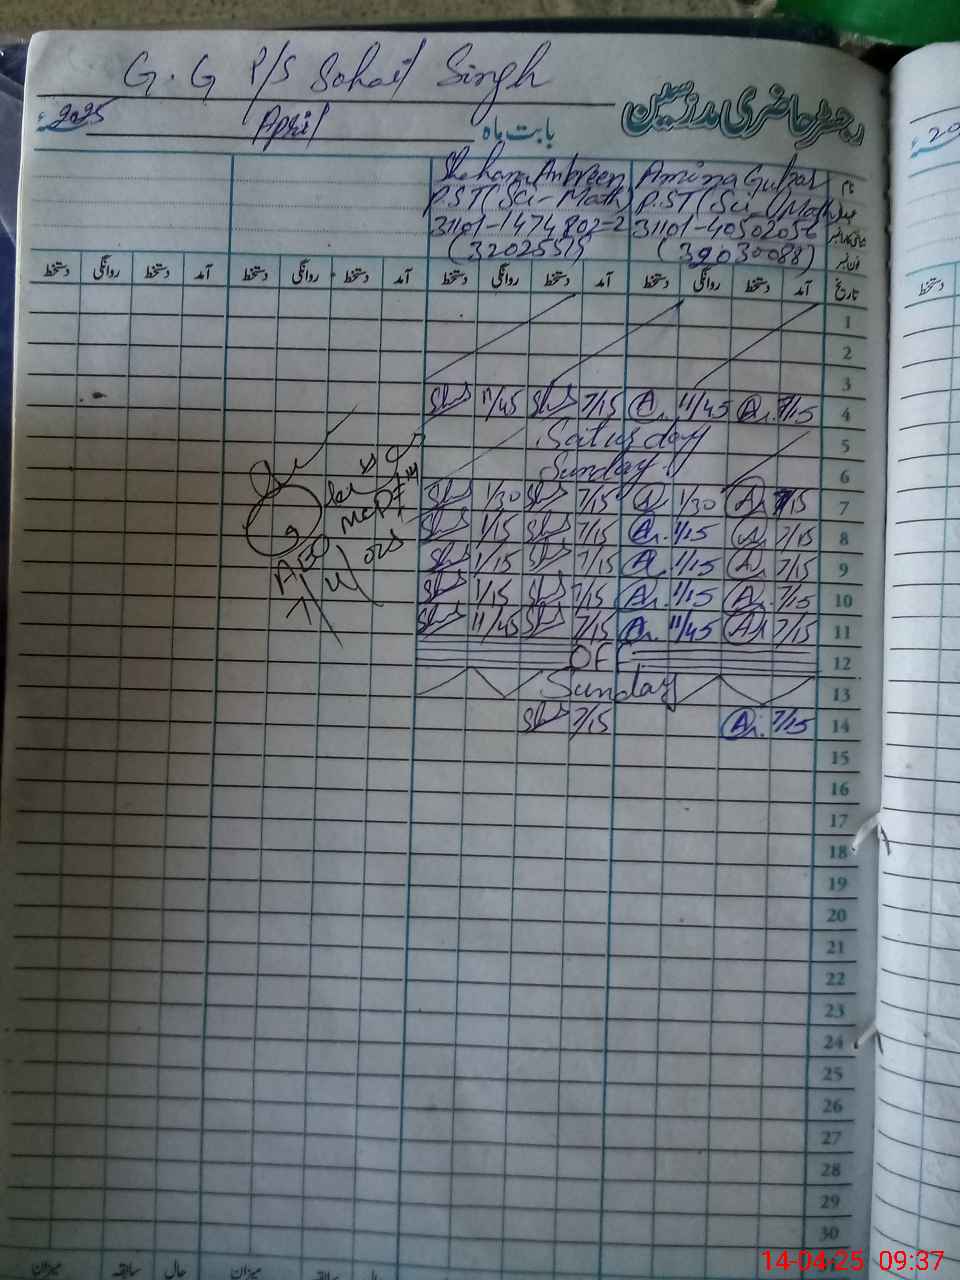 G.G P/S Sohail Singh
رجسٹر حاضری مدرسین
2025ء April بابت ماہ
نام Amina Gulzar Anbreen
عہدہ P.ST(Sci-Math) P.ST(Sci-Math)
31101-4050205 31101-1474802-2
(39030088) (3202551)
تاریخ آمد دستخط روانگی دستخط آمد دستخط روانگی دستخط آمد دستخط روانگی دستخط آمد دستخط روانگی دستخط
1
2
3
4 7/15 A. 11/45 A. 7/15 11/45
5 Saturday
6 Sunday
7 7/15 A. 1/30 A. 7/15 1/30
8 7/15 A. 1/15 A. 7/15 1/15
9 7/15 A. 1/15 A. 7/15 1/15
10 7/15 A. 1/15 A. 7/15 1/15
11 7/15 A. 11/45 A. 7/15 11/45
12 OFF
13 Sunday
14 7/15 A. 7/15
15
16
17
18
19
20
21
22
23
24
25
26
27
28
29
30
میزان سابقہ حال میزان سابقہ
14-04-25 09:37